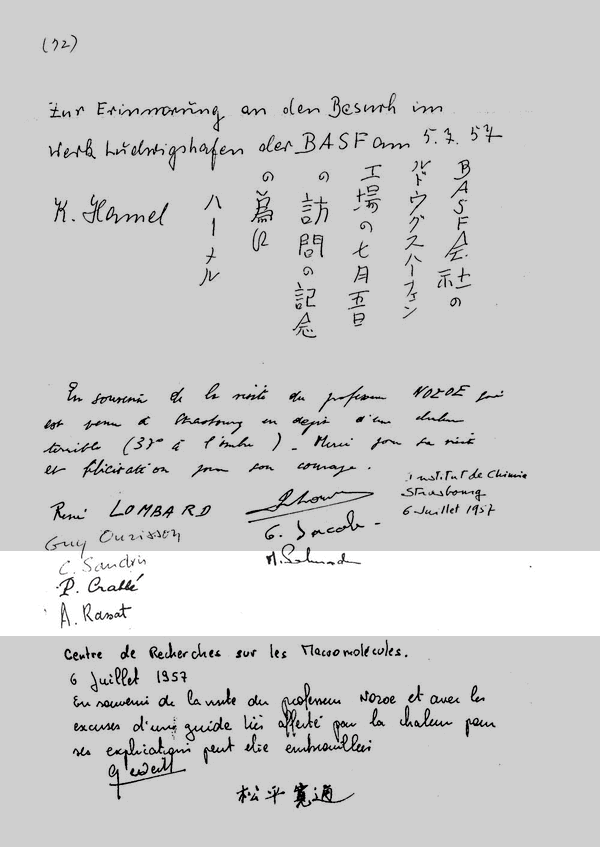 (72)
Zur Erinnerung an den Besuch im
Werk Ludwigshafen der BASF am 5.7.57
K. Hamel
BASF会社の
ルドウグスハーフェン
工場の七月五日
の訪問の記念
の為に
ハーメル
En souvenir de la visite du professeur NOZOE qui
est venu à Strasbourg en dépit d'une chaleur
terrible (37° à l'ombre). Merci pour sa visite
et félicitation pour son courage.
Institut de Chimie
Strasbourg
6 Juillet 1957
René LOMBARD
Guy Ourisson
G. Jacob
C. Sandris
P. Crabbé
A. Rassat
Centre de Recherches sur les Macromolécules.
6 Juillet 1957
En souvenir de la visite du professeur Nozoe et avec les
excuses d'un guide très affecté par la chaleur pour
ses explications peut être embrouillées
松平寛通